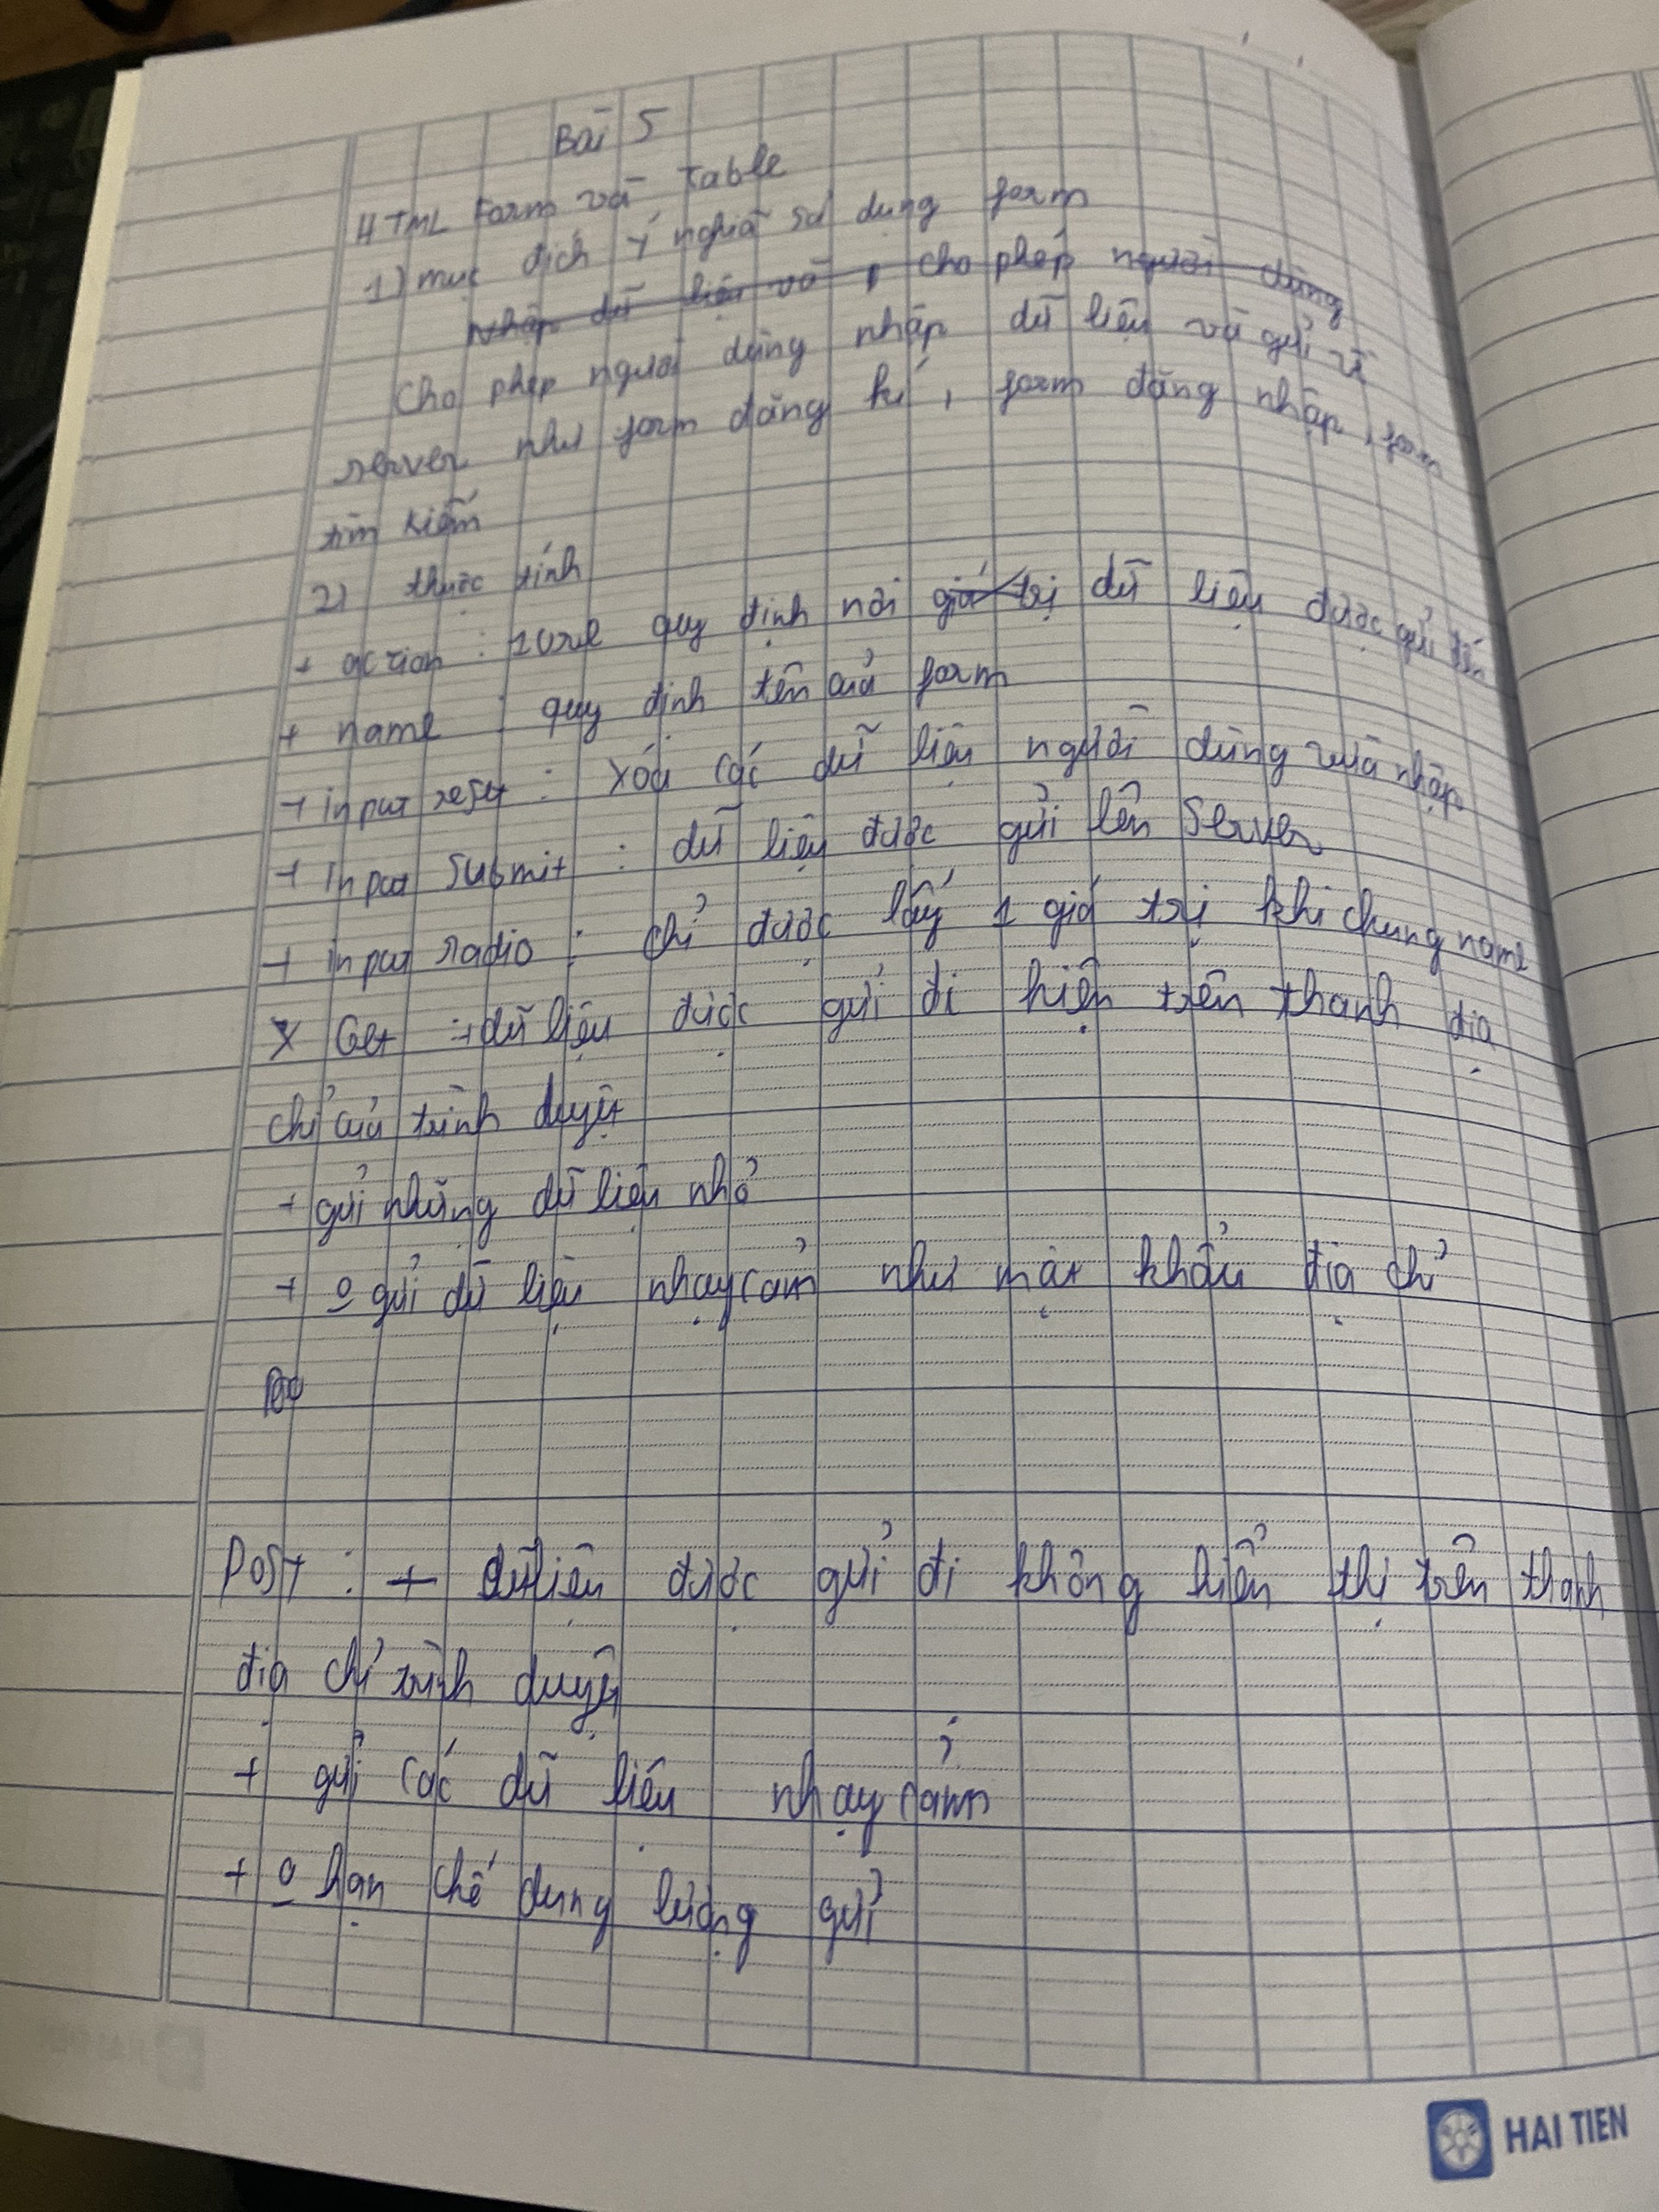 Bài 5
HTML Form và Table
1) mục đích ý nghĩa sử dụng form
Nhập dữ liệu và , cho phép người dùng
Cho phép người dùng nhập dữ liệu và gửi về
server như form đăng kí, form đăng nhập, form
tìm kiếm
2) thuộc tính
+ action : 1 url quy định nơi giá trị dữ liệu được gửi đến
+ name : quy định tên của form
+ input reset : xóa các dữ liệu người dùng vừa nhập
+ input submit : dữ liệu được gửi lên Server
+ input radio : chỉ được lấy 1 giá trị khi chung name
X Get : + dữ liệu được gửi đi hiện trên thanh địa
chỉ của trình duyệt
+ gửi những dữ liệu nhỏ
+ o gửi dữ liệu nhạy cảm như mật khẩu địa chỉ
Post : + dữ liệu được gửi đi không hiển thị trên thanh
địa chỉ trình duyệt
+ gửi các dữ liệu nhạy cảm
+ o hạn chế dung lượng gửi
HAI TIEN